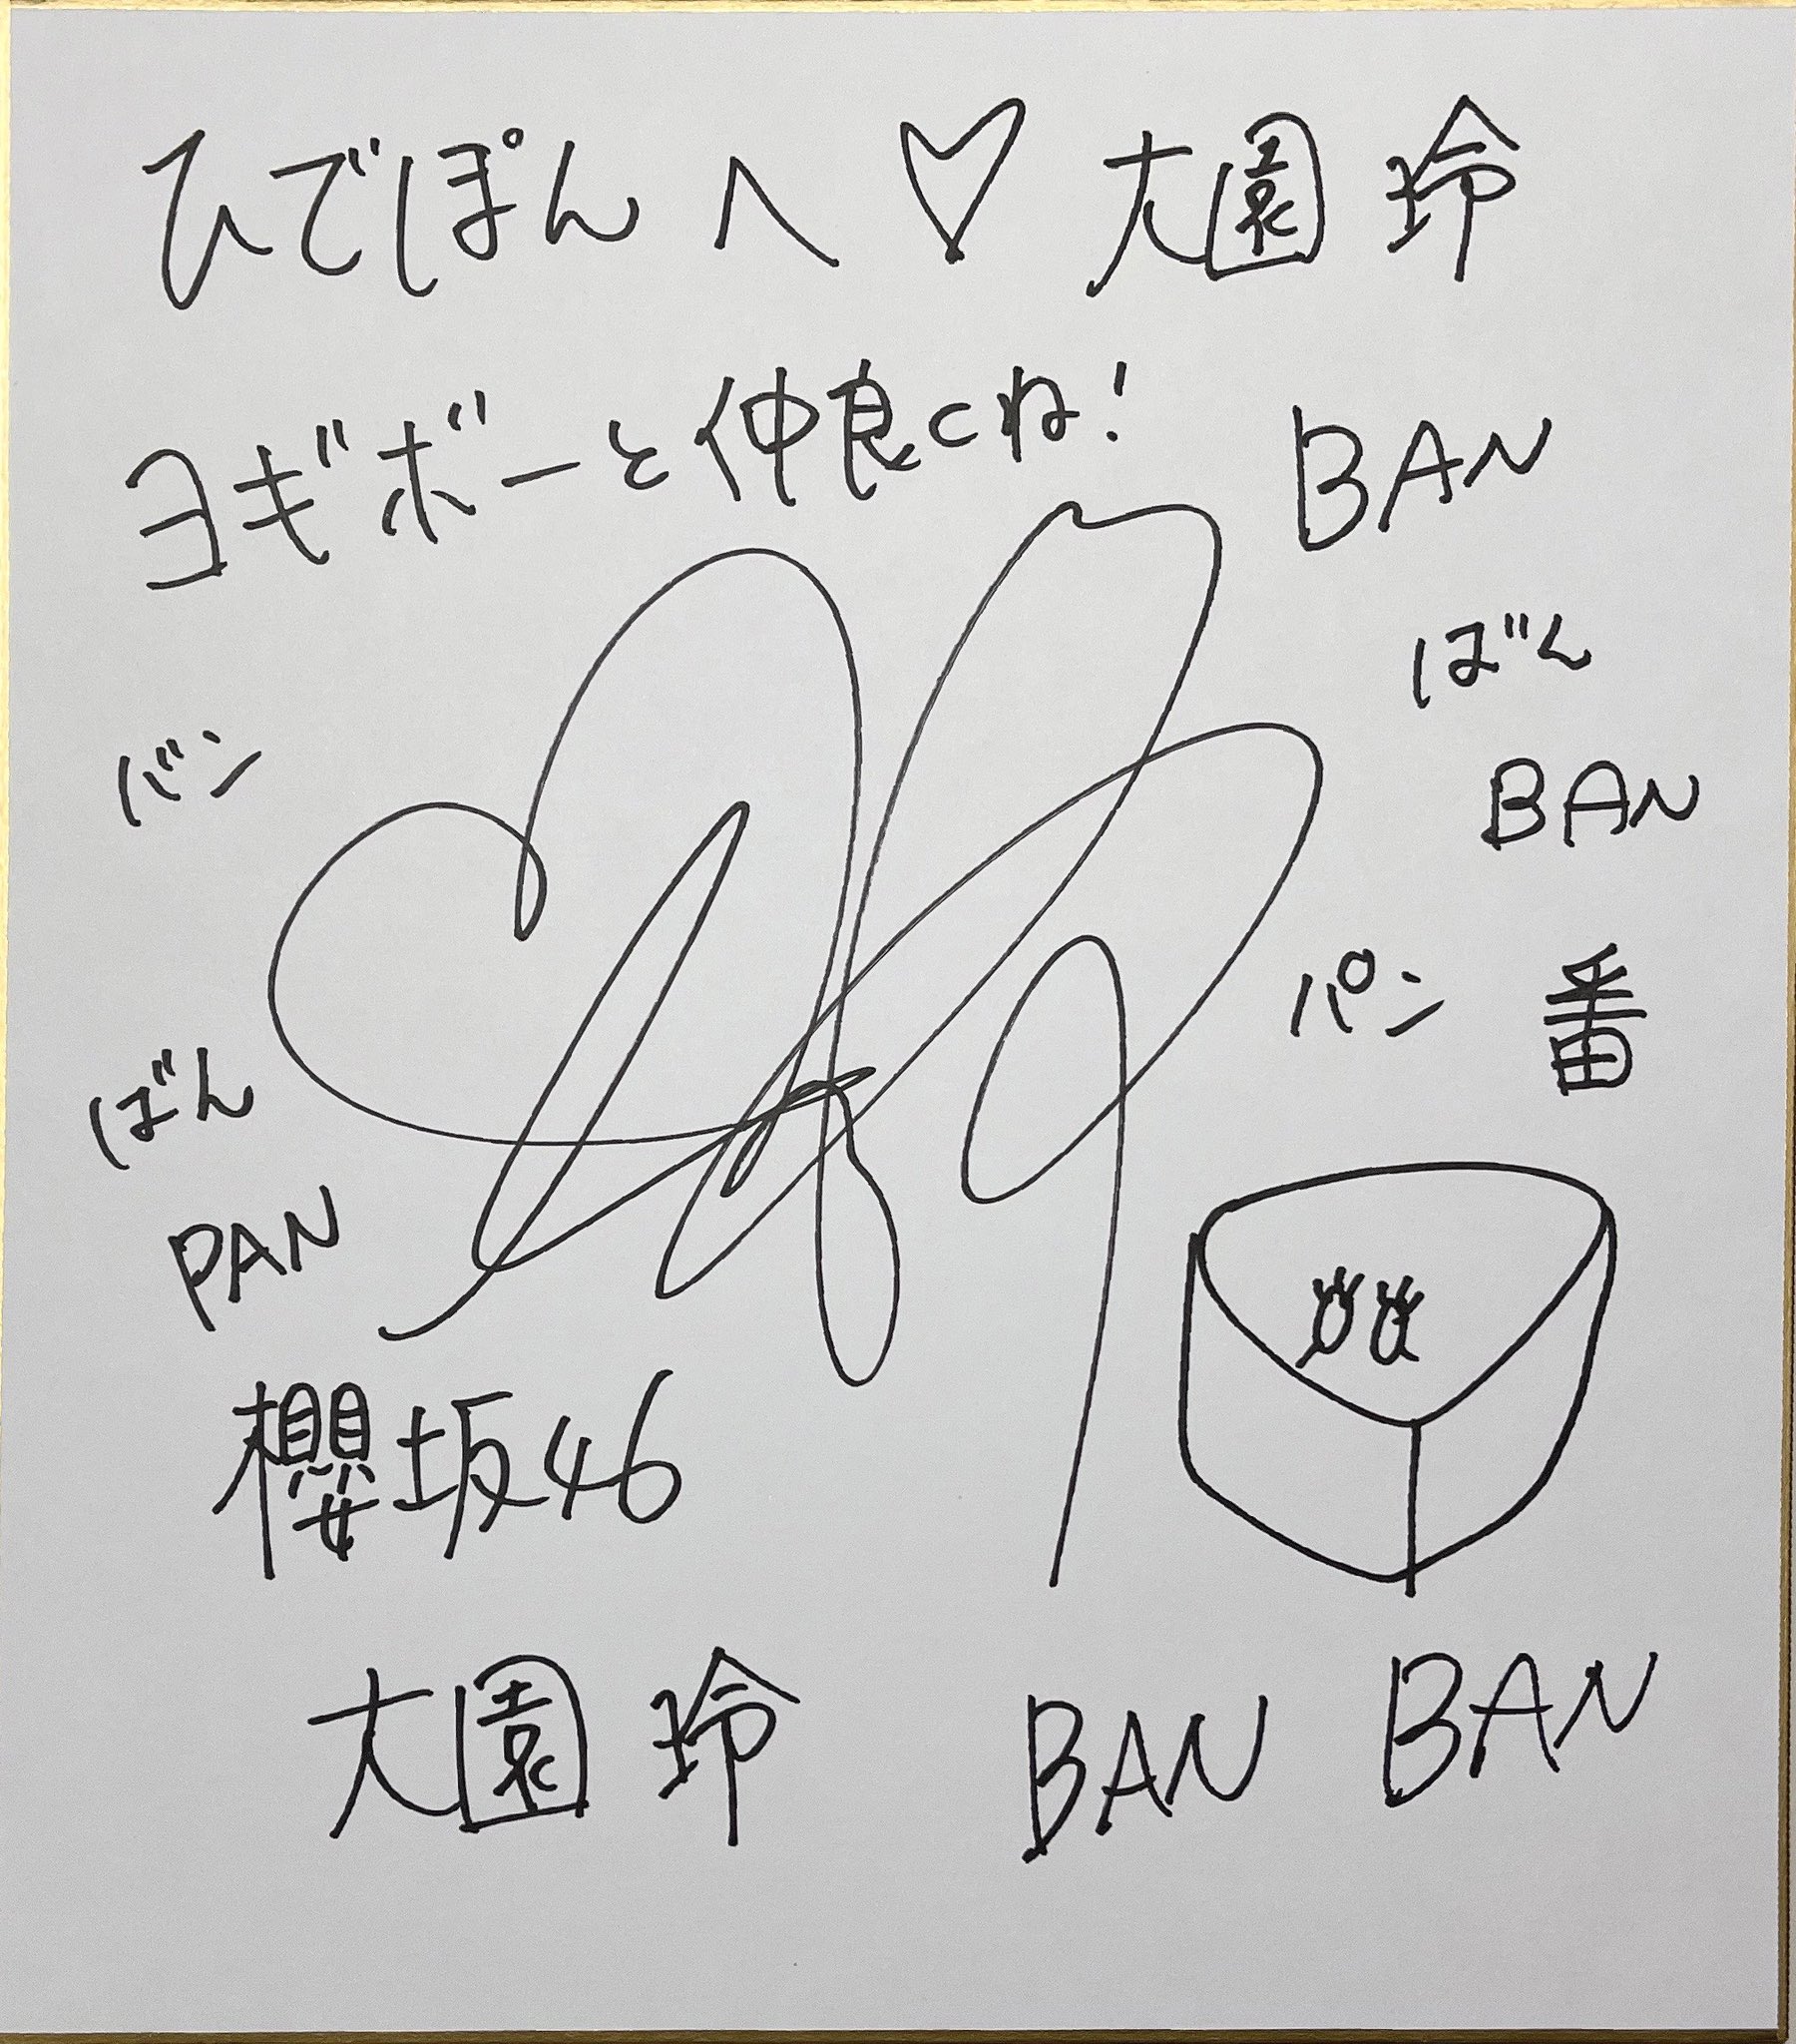 ひでぽんへ♡ 大園 玲
ヨギボーと仲良くね!
BAN
ばん
バン
BAN
パン
番
ばん
PAN
櫻坂46
大園 玲
BAN BAN